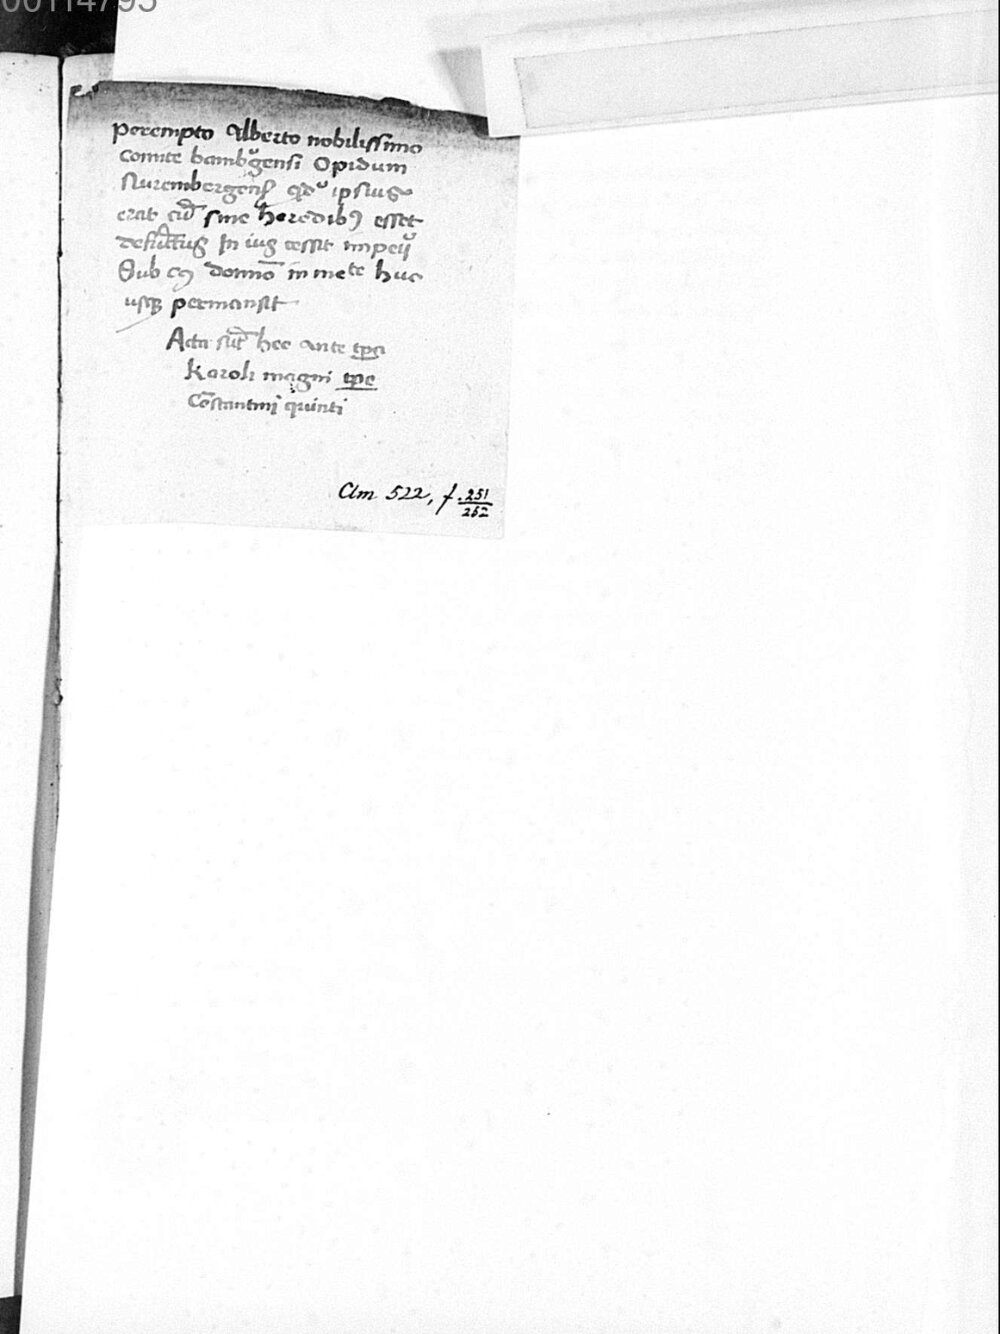 00114795
perempto Alberto nobilissimo
comite bambůgensi Opidum
Nurembergens̄ qd' ipsius
erat cū sine heredibꝰ esset
In ius cessit impeij
Sub domno in mete huc
usqꝫ permansit
Acta sūt hec ante tpa
Karoli magni tpe
Cōstantini quinti
Clm 522, f. 251/252